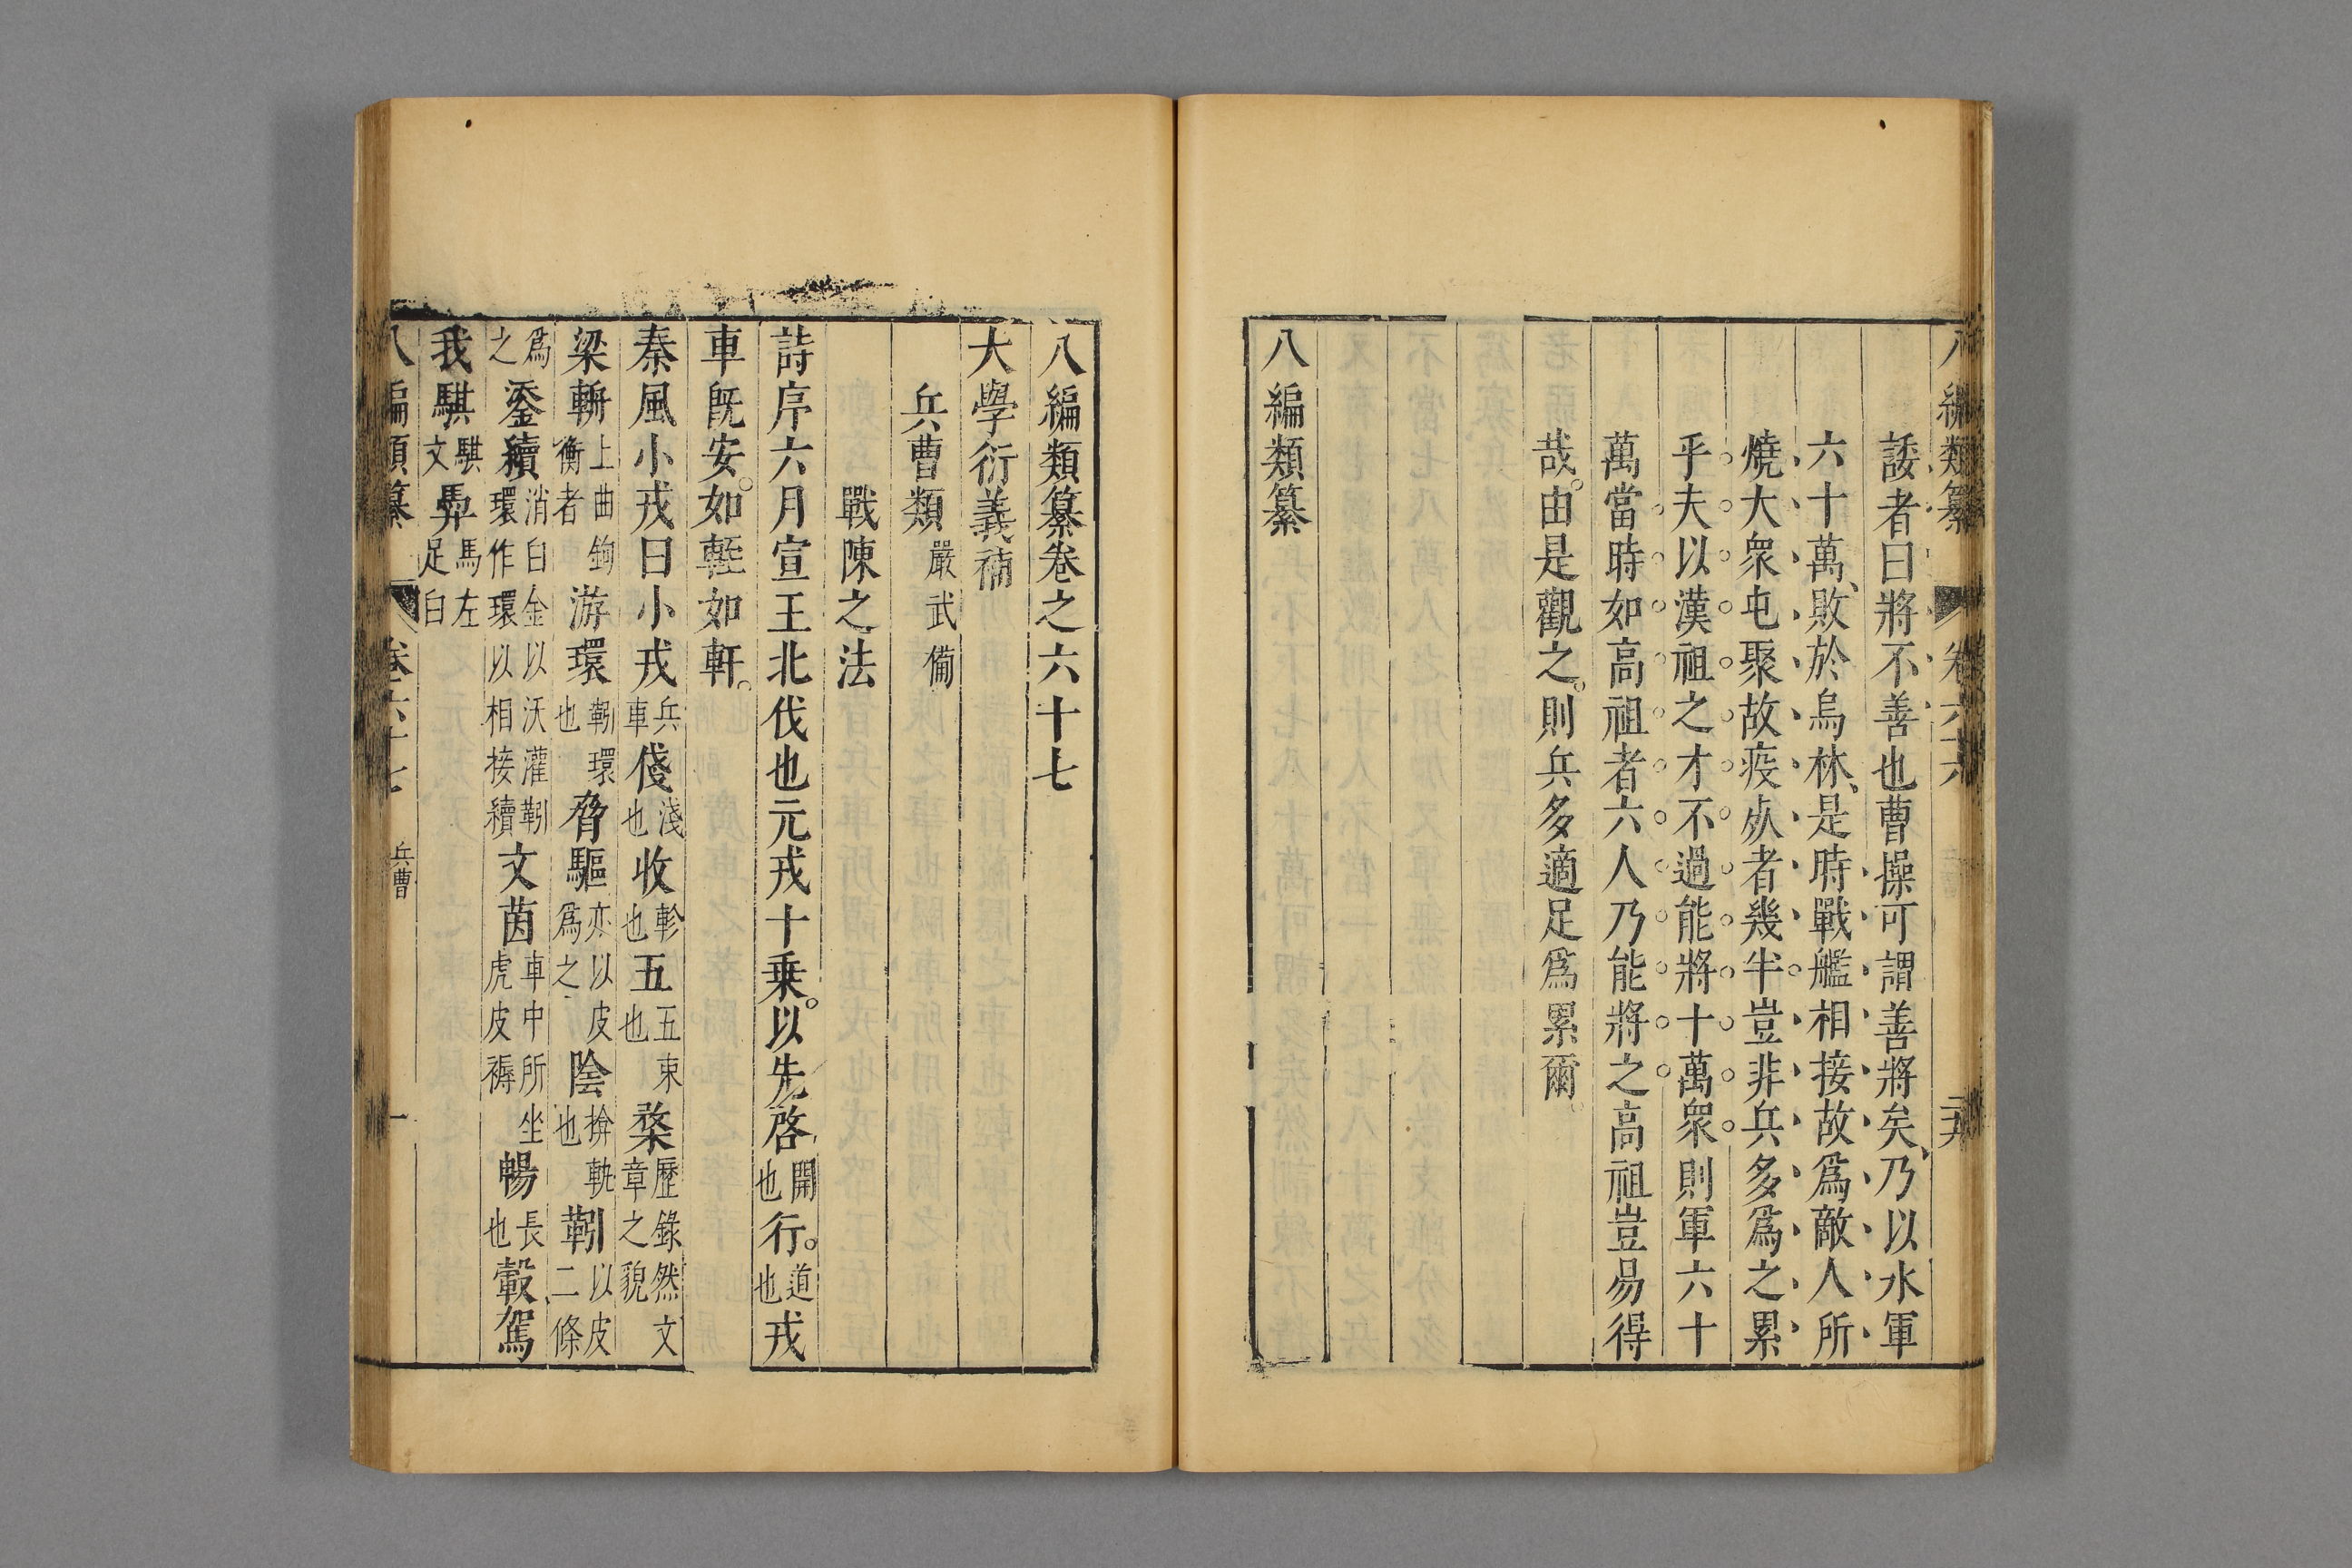 八編類纂 卷六十六
諉者曰將不善也曹操可謂善將矣乃以水軍
六十萬敗於烏林是時戰艦相接故爲敵人所
燒大衆屯聚故疫死者幾半豈非兵多爲之累
乎夫以漢祖之才不過能將十萬衆則軍六十
萬當時如高祖者六人乃能將之高祖豈易得
哉由是觀之則兵多適足爲累爾
八編類纂
八編類纂卷之六十七
大學衍義補
兵曹類 嚴武備
戰陳之法
詩序六月宣王北伐也元戎十乗以先啓開也行道也戎
車旣安如輊如軒
秦風小戎曰小戎兵車俴淺也收軫也五五束也楘歷錄然文章之貌
梁輈上曲鉤衡者游環靷環也脅驅亦以皮爲之陰揜軓也靷以皮二條
爲之鋈續消白金以沃灌靷環作環以相接續文茵車中所坐虎皮褥暢長也轂駕
我騏騏文馵馬左足白
八編類纂 卷六十七 兵曹 一